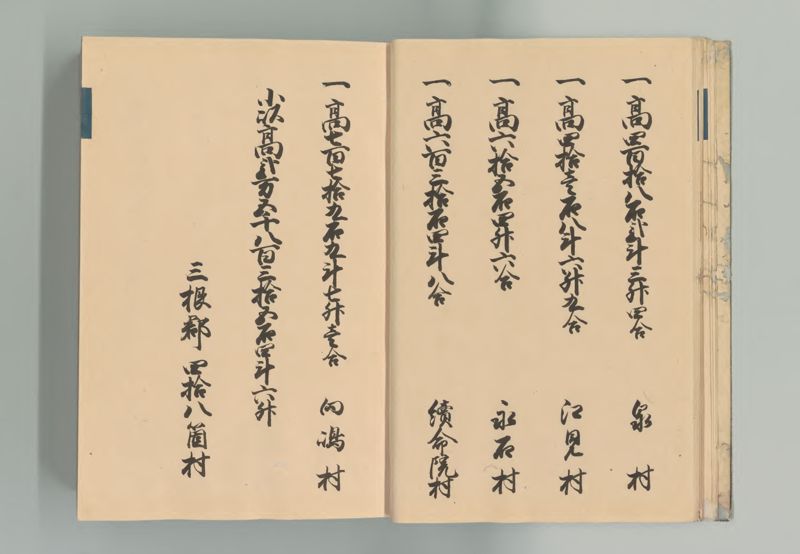 一高四百拾八石弐斗三升四合 泉村
一高四拾壱石八斗六升九合 江見村
一高六拾五石四升六合 永石村
一高六百三拾石四斗八合 續命院村
一高七百七拾九石九斗七升壱合 向嶋村
小以高弐万五千八百三拾五石四斗六升
三根郡 四拾八箇村